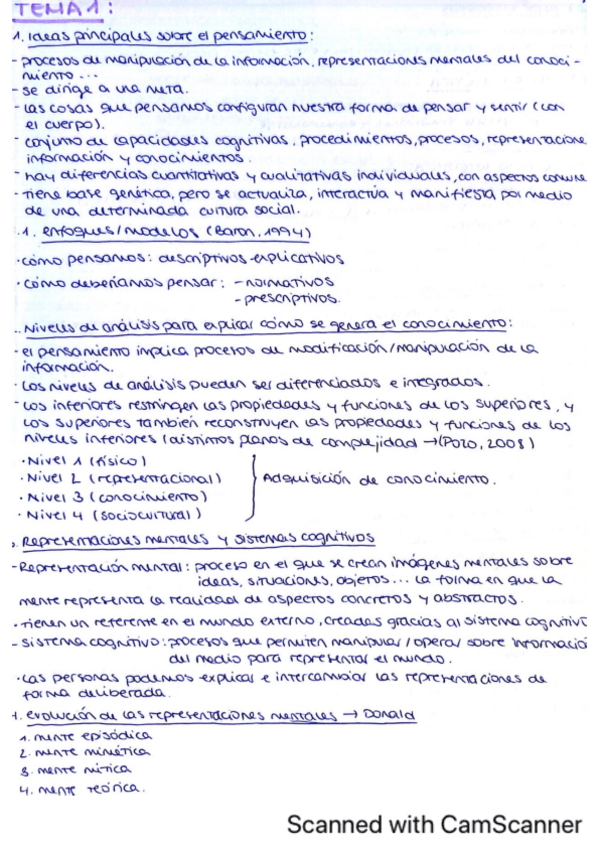 TEMA 1:
1. Ideas principales sobre el pensamiento:
- procesos de manipulación de la información, representaciones mentales del conoci-
miento ...
- se dirige a una meta.
- Las cosas que pensamos configuran nuestra forma de pensar y sentir (con
el cuerpo).
- conjunto de capacidades cognitivas, procedimientos, procesos, representacione
información y conocimientos.
- hay diferencias cuantitativas y cualitativas individuales, con aspectos comune
- tiene base genética, pero se actualiza, interactúa y manifiesta por medio
de una determinada cultura social.
.1. enfoques/modelos (Baron, 1994)
· cómo pensamos: descriptivos-explicativos
· cómo deberíamos pensar: - normativos
- prescriptivos.
.. Niveles de análisis para explicar cómo se genera el conocimiento:
- el pensamiento implica procesos de modificación/manipulación de la
información.
· Los niveles de análisis pueden ser diferenciados e integrados.
- Los inferiores restringen las propiedades y funciones de los superiores, y
los superiores también reconstruyen las propiedades y funciones de los
niveles inferiores (distintos planos de complejidad → (Pozo, 2008)
· Nivel 1 (físico)
· Nivel 2 (representacional)
· Nivel 3 (conocimiento)
· Nivel 4 (sociocultural)
Adquisición de conocimiento.
. Representaciones mentales y sistemas cognitivos
- Representación mental: proceso en el que se crean imágenes mentales sobre
ideas, situaciones, objetos... La forma en que la
mente representa la realidad de aspectos concretos y abstractos.
· tienen un referente en el mundo externo, creadas gracias al sistema cognitivo
- sistema cognitivo: procesos que permiten manipular/operar sobre informació
del medio para representar el mundo.
· Las personas podemos explicar e intercambiar las representaciones de
forma deliberada.
1. evolución de las representaciones mentales → Donald
1. mente episódica
2. mente mimética
3. mente mítica
4. mente teórica.
Scanned with CamScanner